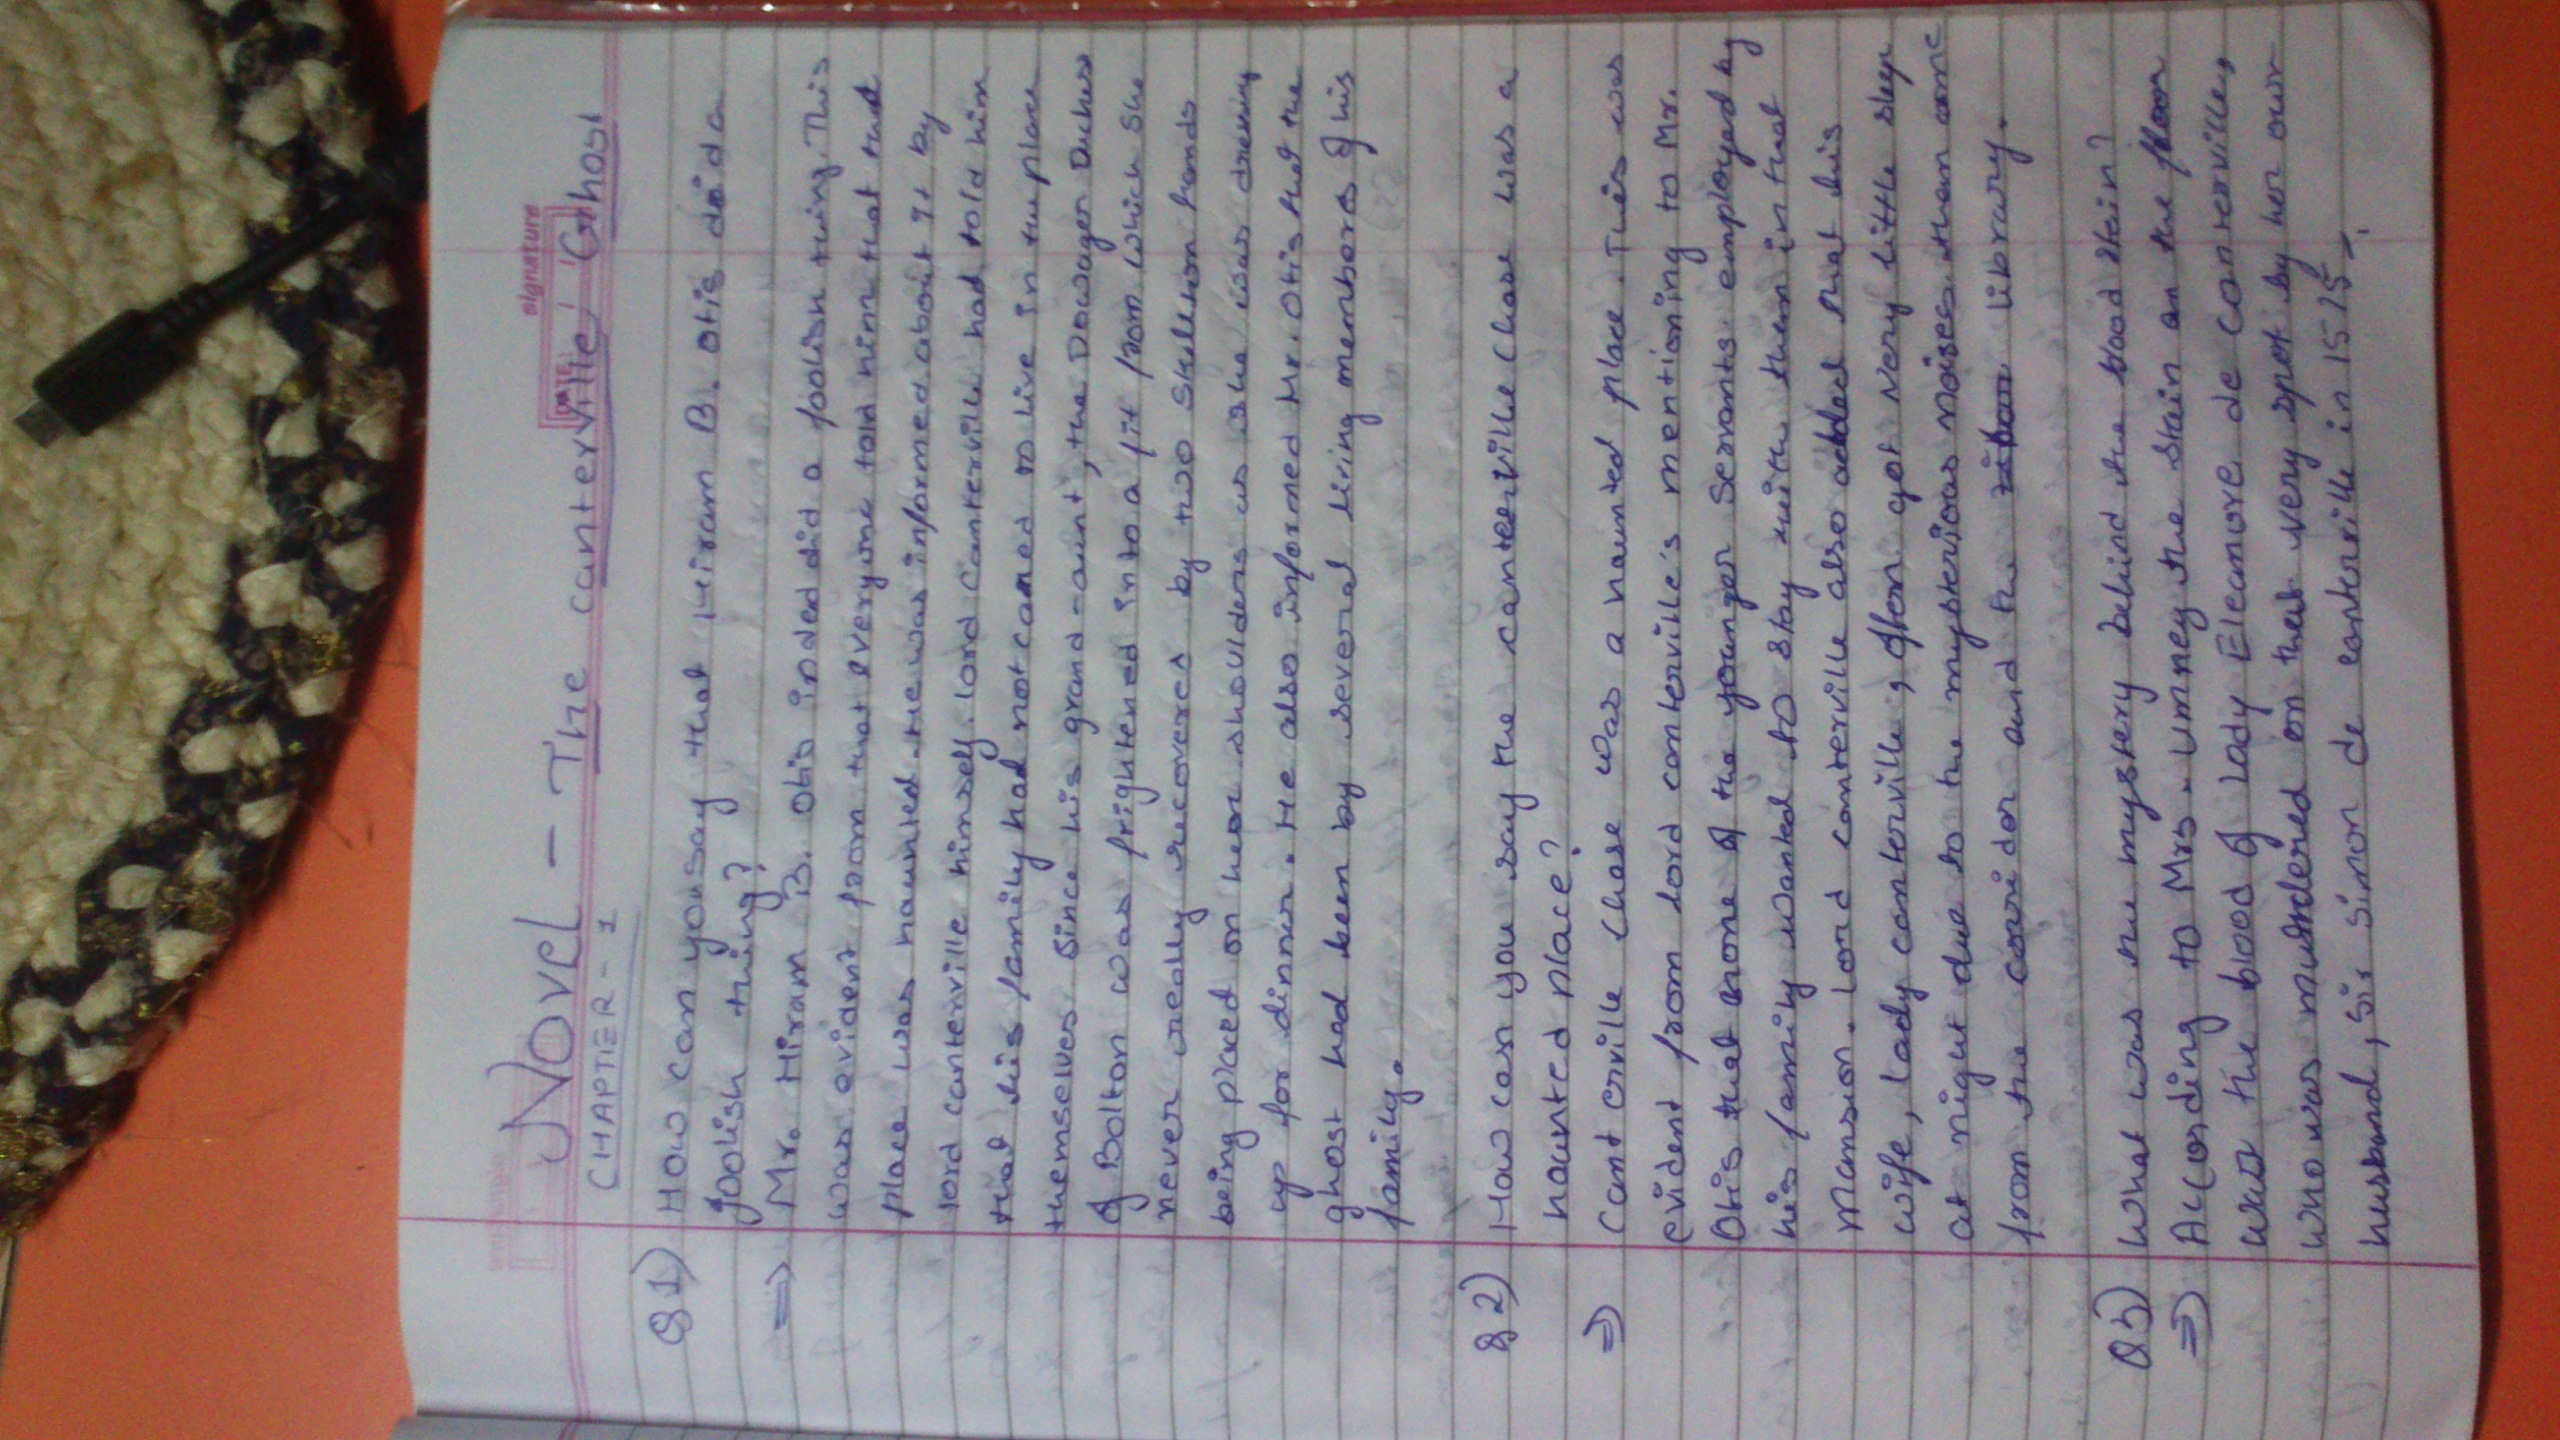 signature
Novel - The canterville Ghost
DATE
CHAPTER - 1
Q1) How can you say that Hiram B. Otis did a
foolish thing?
⇒ Mr. Hiram B. Otis inded did a foolish thing. This
was evident from that everyone told him that that
place was haunted. He was informed about it by
lord canterville himself. lord Canterville had told him
that his family had not cared to live in the place
themselves since his grand-aunt, the Dowager Duchess
of Bolton was frightened into a fit from which she
never really recovered by two skeleton hands
being placed on her shoulders as she was dressing
up for dinner. He also informed Mr. Otis that the
ghost had been by several living members of his
family.
Q2) How can you say the canterville Chase was a
haunted place?
⇒ Canterville Chase was a haunted place. This was
evident from lord canterville's mentioning to Mr.
Otis that none of the younger servants employed by
his family wanted to stay with them in that
mansion. Lord canterville also added that his
wife, lady canterville, often got very little sleep
at night due to the mysterious noises than come
from the corridor and the library.
Q3) What was the mystery behind the blood stain?
⇒ According to Mrs. Umney the stain on the floor
was the blood of lady Eleanore de canterville,
who was murdered on that very spot by her own
husband, Sir Simon de canterville in 1575.